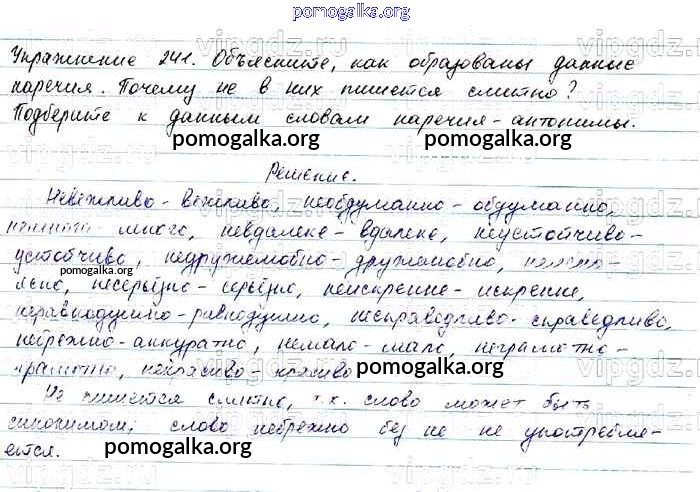 pomogalka.org
Упражнение 241. Объясните, как образованы данные
наречия. Почему не в них пишется слитно?
Подберите к данным словам наречия-антонимы.
pomogalka.org pomogalka.org
Решение.
Невежливо - вежливо, необдуманно - обдуманно,
много, невдалеке - вдалеке, неустойчиво-
устойчиво, недружелюбно - дружелюбно,
pomogalka.org
несерьёзно - серьёзно, неискренне - искренне,
неравнодушно - равнодушно, несправедливо - справедливо,
небрежно - аккуратно, немало - мало, неграмотно-
грамотно, некрасиво - красиво
pomogalka.org
Не пишется слитно, т.к. слово может быть
синонимом; слово небрежно без не не употребля-
ется.
pomogalka.org pomogalka.org